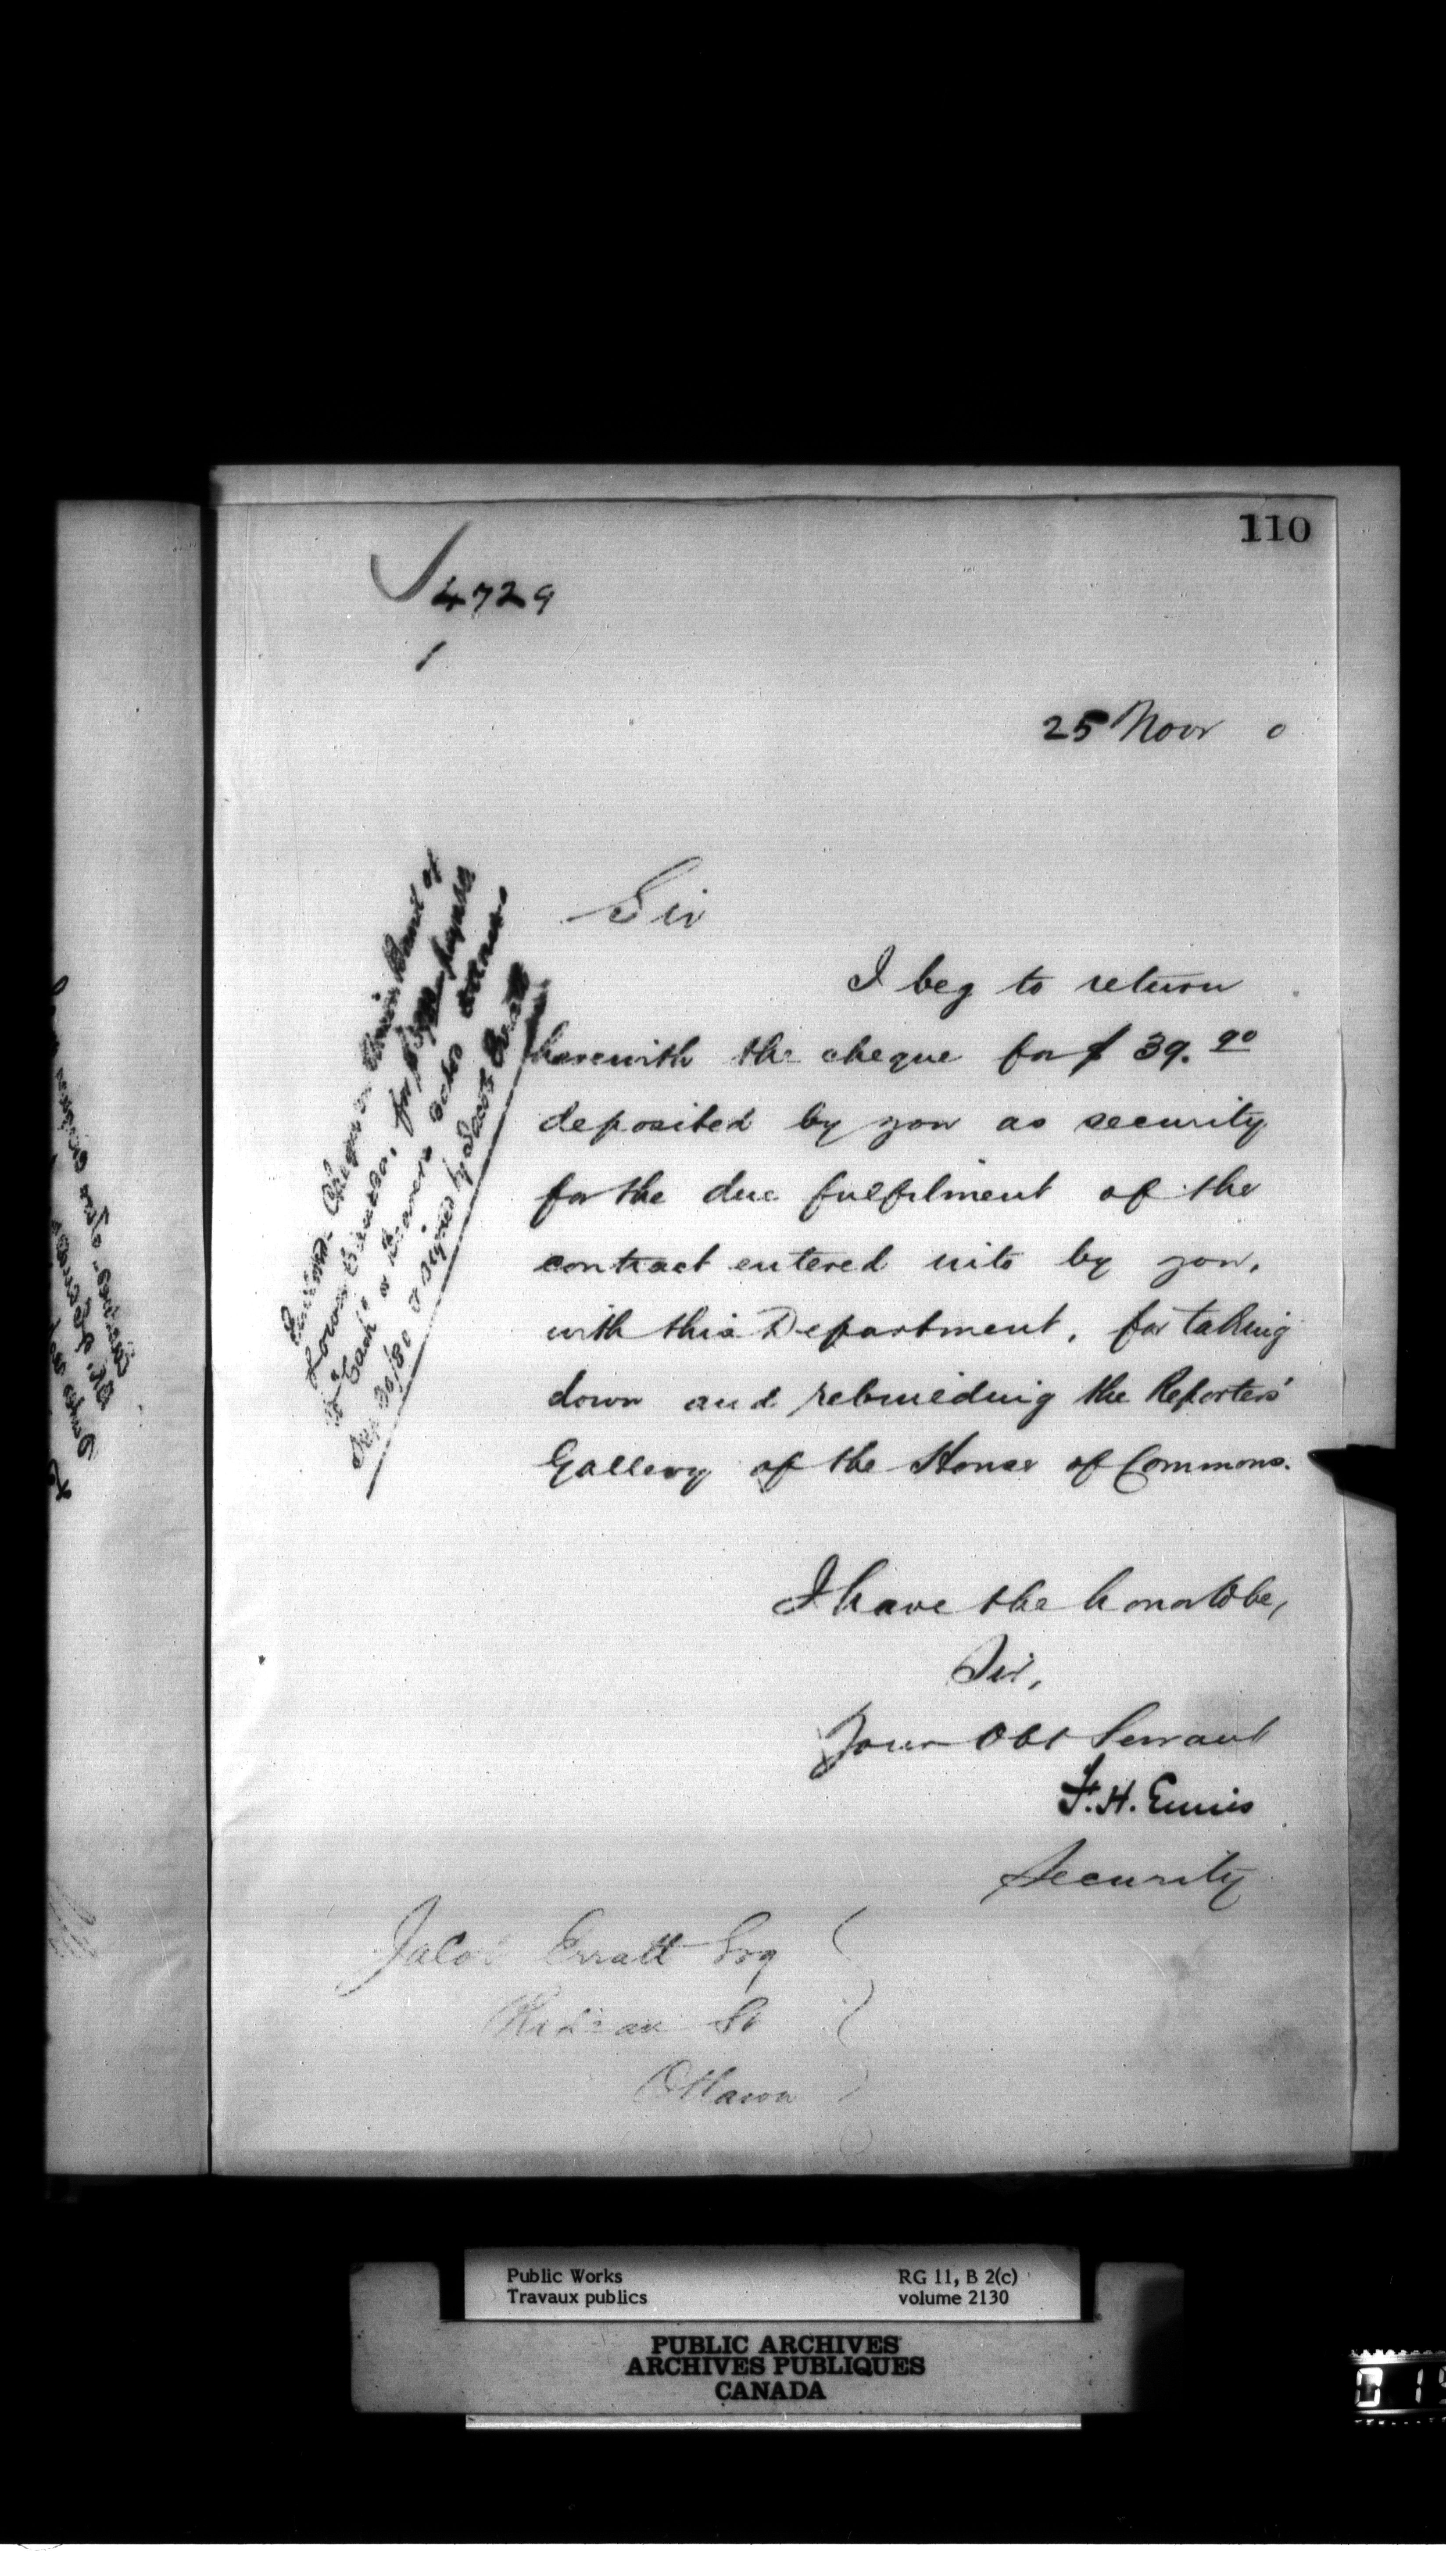 110
4729
1
25 Novr 0
Sir
I beg to return
herewith the cheque for $ 39.90
deposited by you as security
for the due fulfilment of the
contract entered into by you,
with this Department, for taking
down and rebuilding the Reporters'
Gallery of the House of Commons.
I have the honor to be,
Sir,
Your Obt Servant
F. H. Ennis
Security
Jacob Erratt Esq
Rideau St
Ottawa
Cheque on Union Bank of
Lower Canada, for
Cash or Bearer dated Ottawa
Sep 30/80 & signed by Jacob Erratt
Public Works
Travaux publics
RG 11, B 2(c)
volume 2130
PUBLIC ARCHIVES
ARCHIVES PUBLIQUES
CANADA